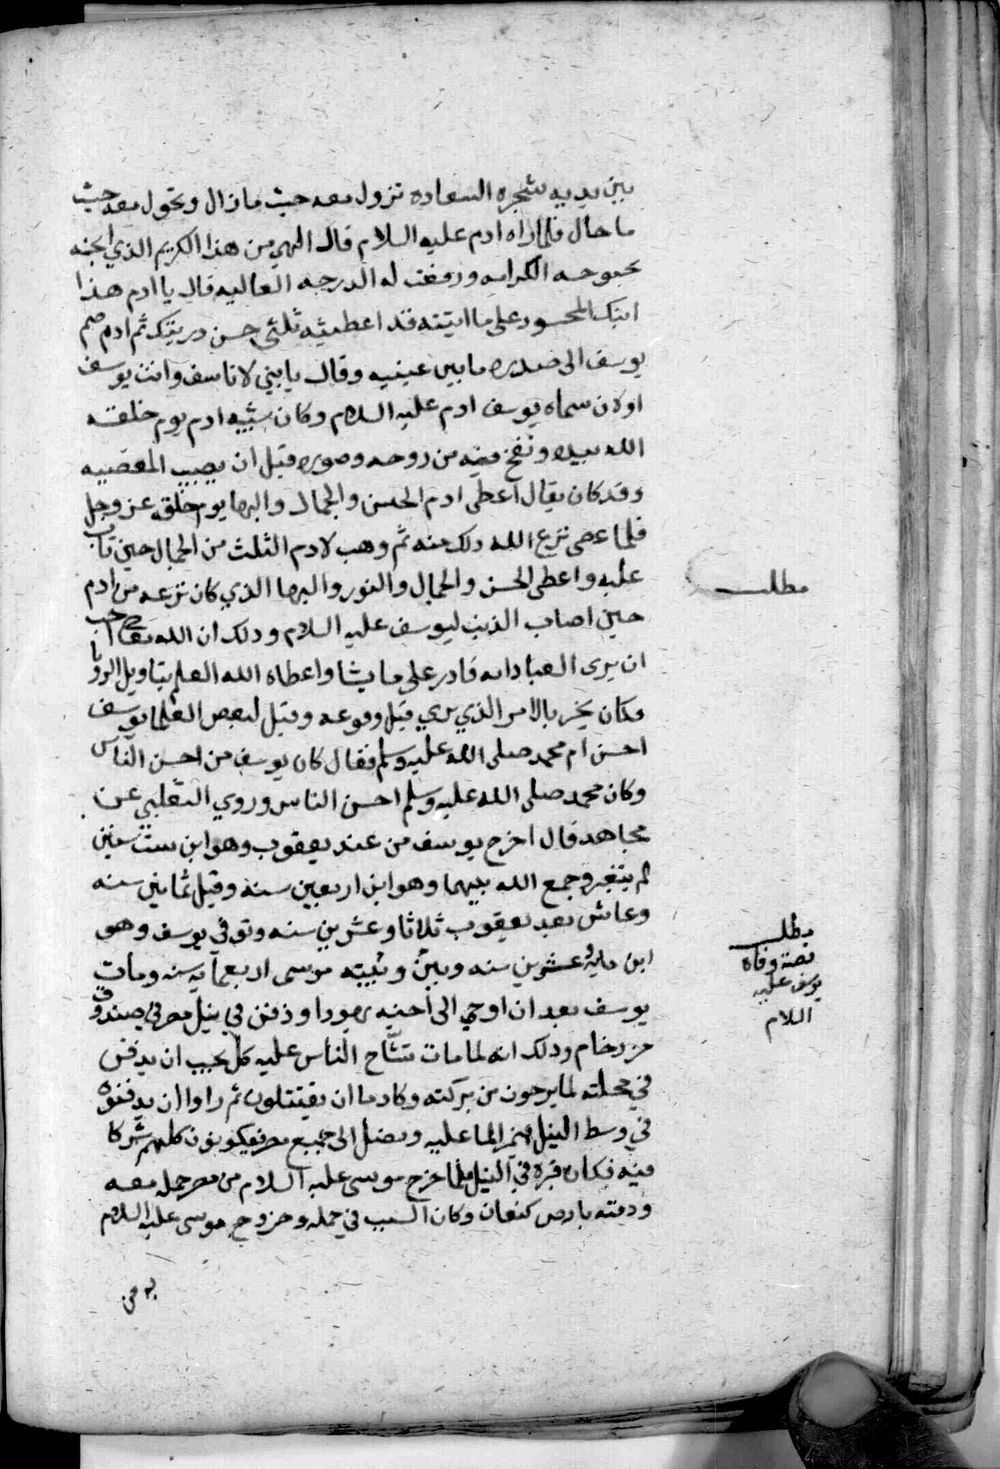 بين يديه شجره السعاده تزول معه حيث ما زال وتحول معه حيث
ما حال فلما راه ادم عليه السلام قال الهي من هذا الكريم الذي ابحته
بحبوحه الكرامه ورفعت له الدرجه العاليه قال يا ادم هذا
ابنك المحسود على ما اتيته قد اعطيته ثلثي حسن دريتك ثم ادم ضم
يوسف الى صدره ما بين عينيه وقال يا بني لا تاسف وانت يوسف
اولان سماه يوسف ادم عليه السلام وكان شبيه ادم يوم خلقه
الله بيده ونفخ فيه من روحه وصوره قبل ان يصيب المعصيه
وقد كان يقال اعطى ادم الحسن والجمال والبها يوم خلق عز وجل
فلما عصى نزع الله دلك منه ثم وهب لادم الثلث من الجمال حين تاب
عليه واعطى الحسن والجمال والنور والبها الذي كان نزعه من ادم
حين اصاب الذنب ليوسف عليه السلام ودلك ان الله تعالى احب
ان يرى العباد انه قادر على ما يشا واعطاه الله العلم بتاويل الرويا
فكان يخبر بالامر الذي يري قبل وقوعه وقيل لبعض العلما يوسف
احسن ام محمد صلى الله عليه وسلم فقال كان يوسف من احسن الناس
وكان محمد صلى الله عليه وسلم احسن الناس وروي الثعلبي عن
مجاهد قال اخرج يوسف من عند يعقوب وهو ابن ست سنين
لم يتغير وجمع الله بينهما وهو ابن اربعين سنه وقيل ثمانين سنه
وعاش بعد يعقوب ثلاثا وعشرين سنه وتوفي يوسف وهو
ابن مايه وعشرين سنه وبين وبينه موسى اربعمايه سنه ومات
يوسف بعد ان اوحي الى اخيه يهودا ودفن في نيل مصر في صندوق
من رخام ودلك انه لما مات تشاح الناس عليه كل يحب ان يدفن
في محلته لما يرجون من بركته وكادما ان يقتتلون ثم راوا ان يدفنوه
في وسط النيل فيمر الما عليه ويصل الى جميع مصر فيكونون كلهم شركا
فيه فكان قبره في النيل فلما خرج موسى عليه السلام من مصر حمله معه
ودفنه بارض كنعان وكان السبب في حمله وخروج موسى عليه السلام
به من
مطلب
مطلب
قصة وفاة
يوسف عليه
السلام